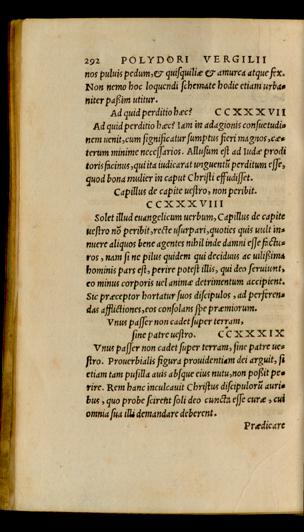 292 POLYDORI VERGILII
nos puluis pedum, & quisquiliæ & amurca atque fex.
Non nemo hoc loquendi schemate hodie etiam urba=
niter paßim utitur.
Ad quid perditio hæc? CCXXXVII
Ad quid perditio hæc? Iam in adagionis consuetudi=
nem uenit, cum significatur sumptus fieri magnos, cæ=
terum minime necessarios. Allusum est ad Iudæ prodi
toris facinus, qui ita iudicarat unguentū perditum esse,
quod bona mulier in caput Christi effudisset.
Capillus de capite uestro, non peribit.
CCXXXVIII
Solet illud euangelicum uerbum, Capillus de capite
uestro nō peribit, recte usurpari, quoties quis uult in=
nuere aliquos bene agentes nihil inde damni esse factu=
ros, nam si ne pilus quidem qui deciduus ac uilißima
hominis pars est, perire potest illis, qui deo seruiunt,
eo minus corporis uel animæ detrimentum accipient.
Sic præceptor hortatur suos discipulos, ad perferen=
das afflictiones, eos consolans spe præmiorum.
Vnus passer non cadet super terram,
sine patre uestro. CCXXXIX
Vnus passer non cadet super terram, sine patre ue=
stro. Prouerbialis figura prouidentiam dei arguit, si
etiam tam pusilla auis absque eius nutu, non poßit pe=
rire. Rem hanc inculcauit Christus discipulorū auri=
bus, quo probe scirent soli deo cuncta esse curæ, cui
omnia sua illi demandare deberent.
Prædicare